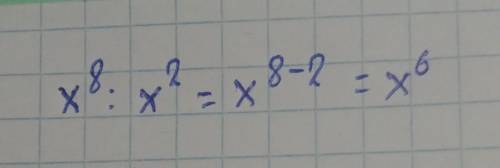 x⁸ : x² = x⁸⁻² = x⁶